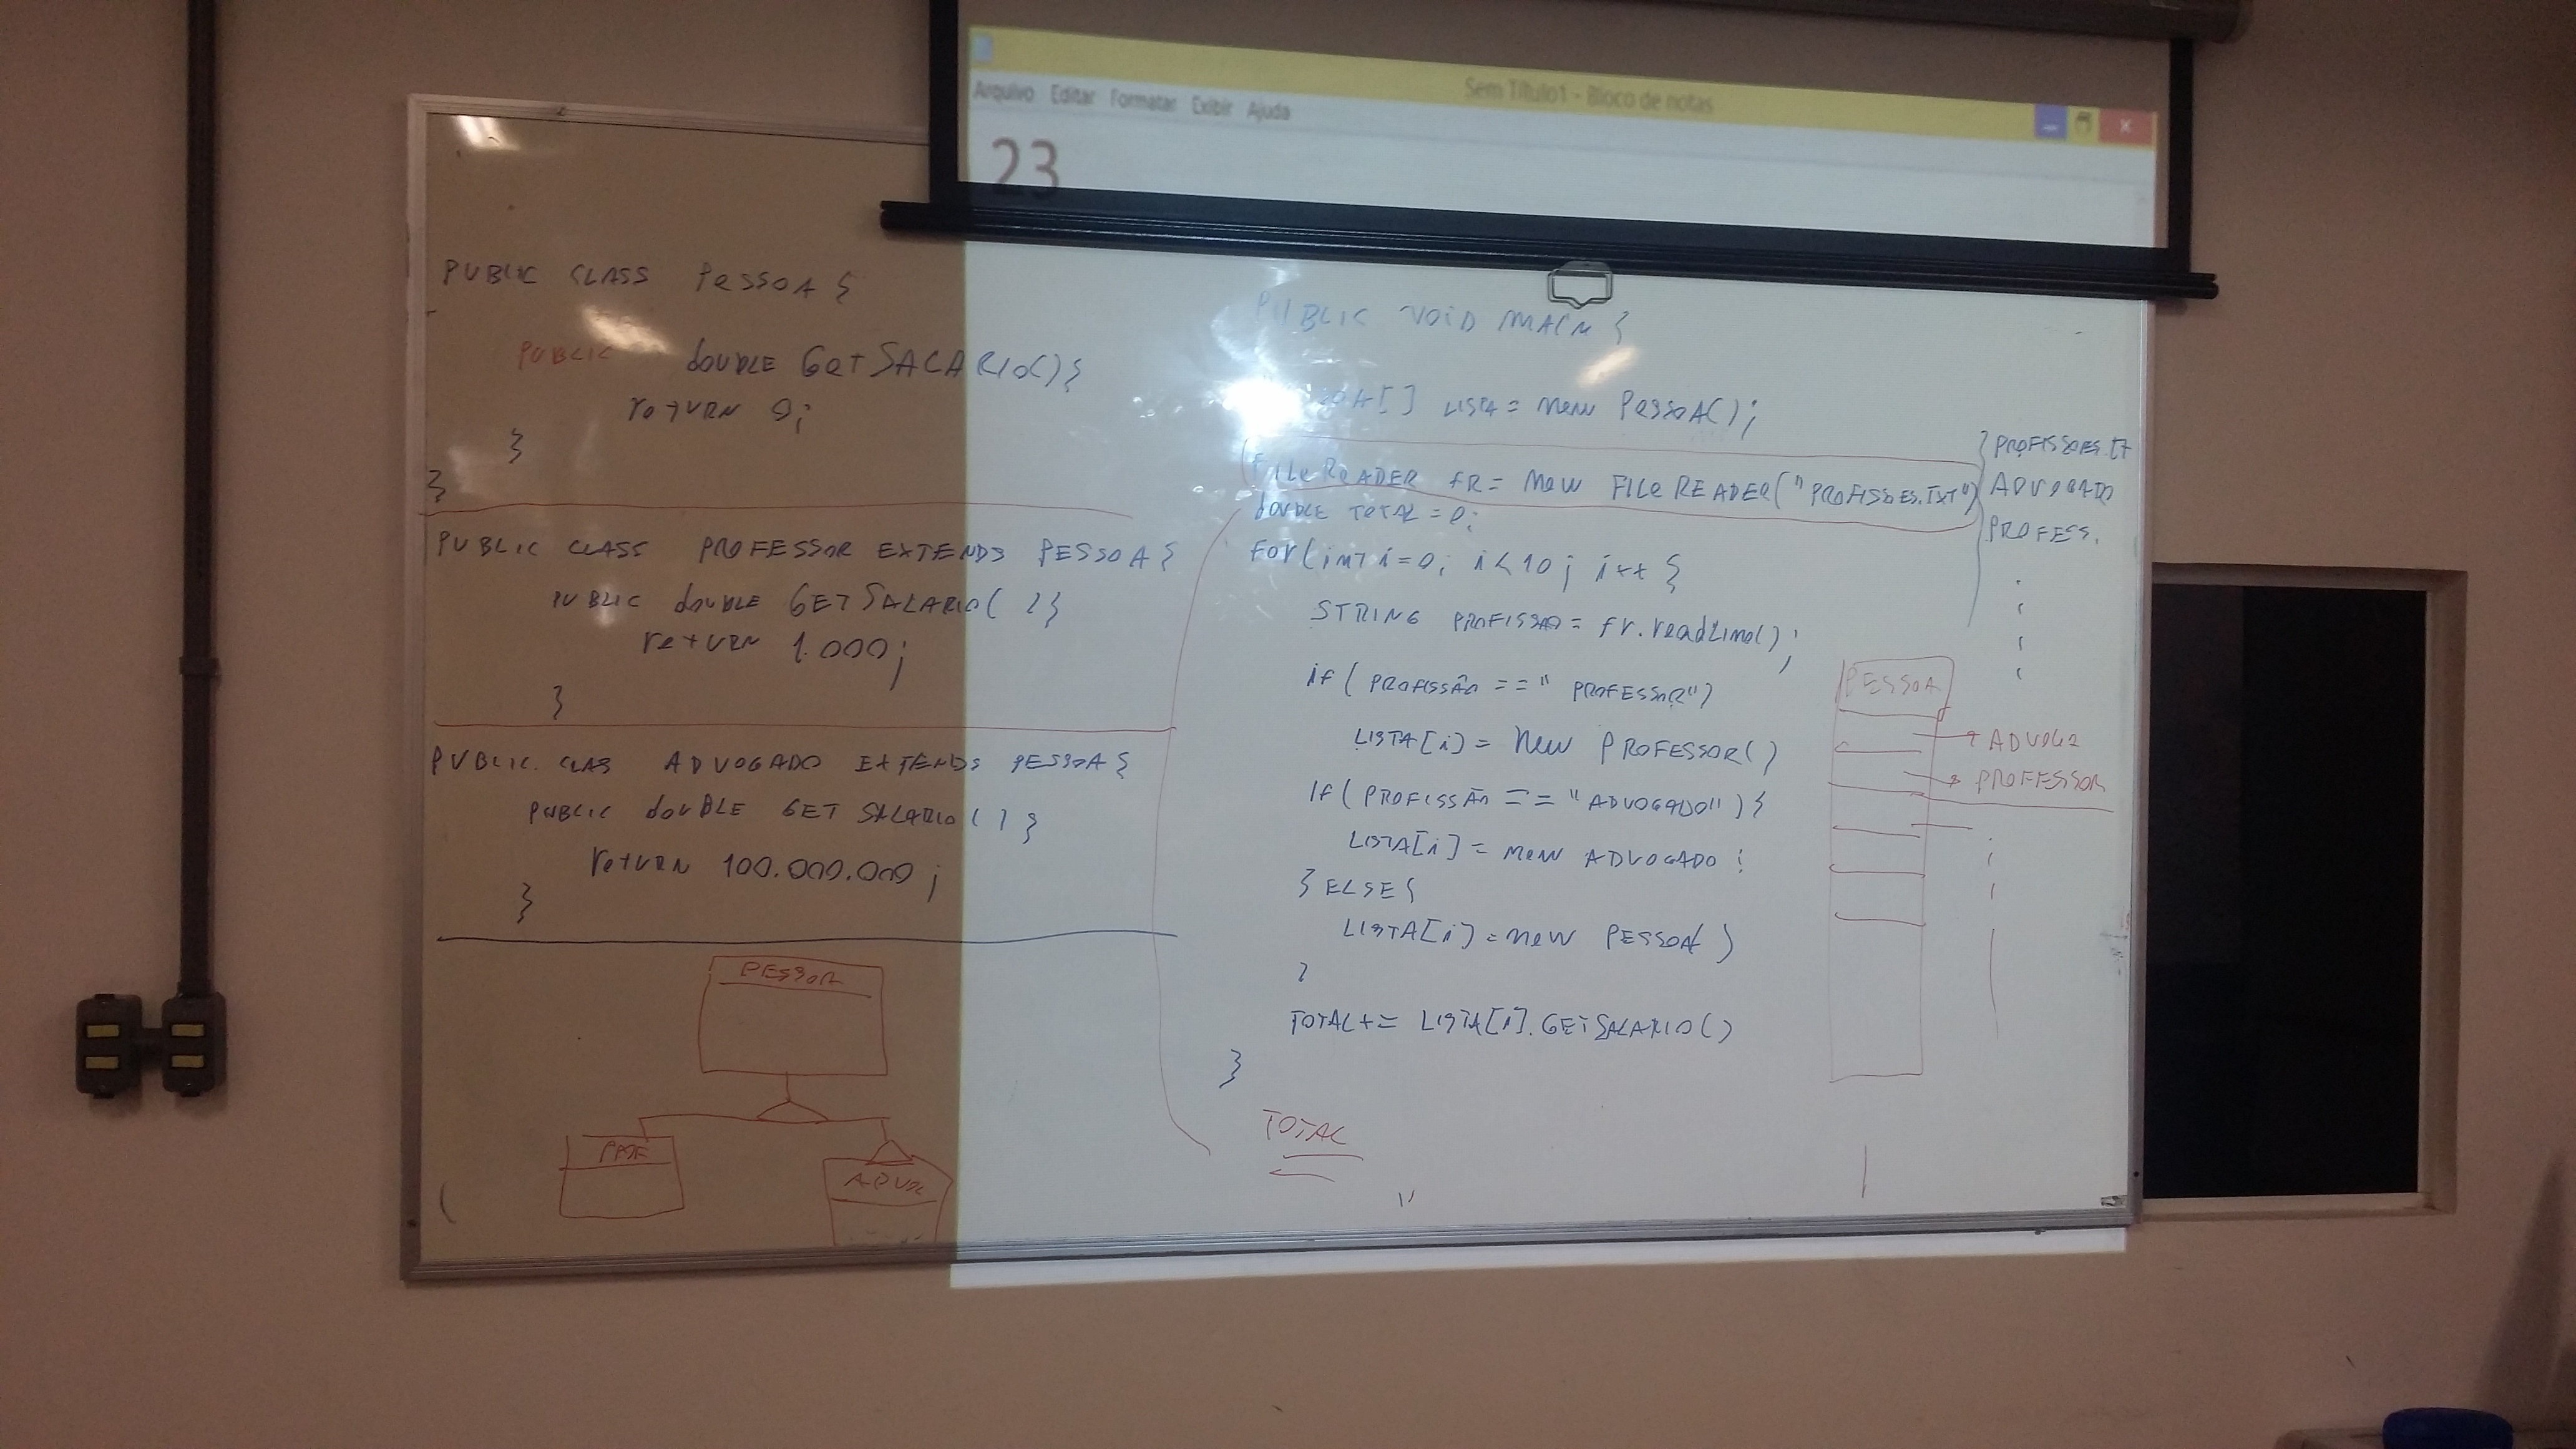 Sem Título1 - Bloco de notas
Arquivo Editar Formatar Exibir Ajuda
23
PUBLIC CLASS PessoA {
PUBLIC double GetSALARIO(){
return 0;
}
}
PUBLIC CLASS PROFESSOR EXTENDS PESSOA {
PUBLIC double GETSALARIO( ) {
return 1.000;
}
PUBLIC. CLAS ADVOGADO EXTENDS PESSOA {
PUBLIC doUBLE GET SALARIO ( ) {
return 100.000.000;
}
PESSOA
PROF
ADVOG
PUBLIC VOID MAIN {
LISTA = new PessoA();
FILeReADER fR = New FILeREADER("PROFISSOES.TXT")
double TOTAL = 0;
for(int i=0; i<10; i++ {
STRING PROFISSAO = fr.readLine();
if ( PROFISSÃO == " PROFESSOR")
LISTA[i] = New PROFESSOR()
If ( PROFISSÃO == "ADVOGADO") {
LISTA[i] = new ADVOGADO ;
} ELSE {
LISTA[i] = new PESSOA( )
}
TOTAL += LISTA[i].GETSALARIO()
}
TOTAL
ADVOGADO
PROFESS.
PESSOA
PROFESSOR